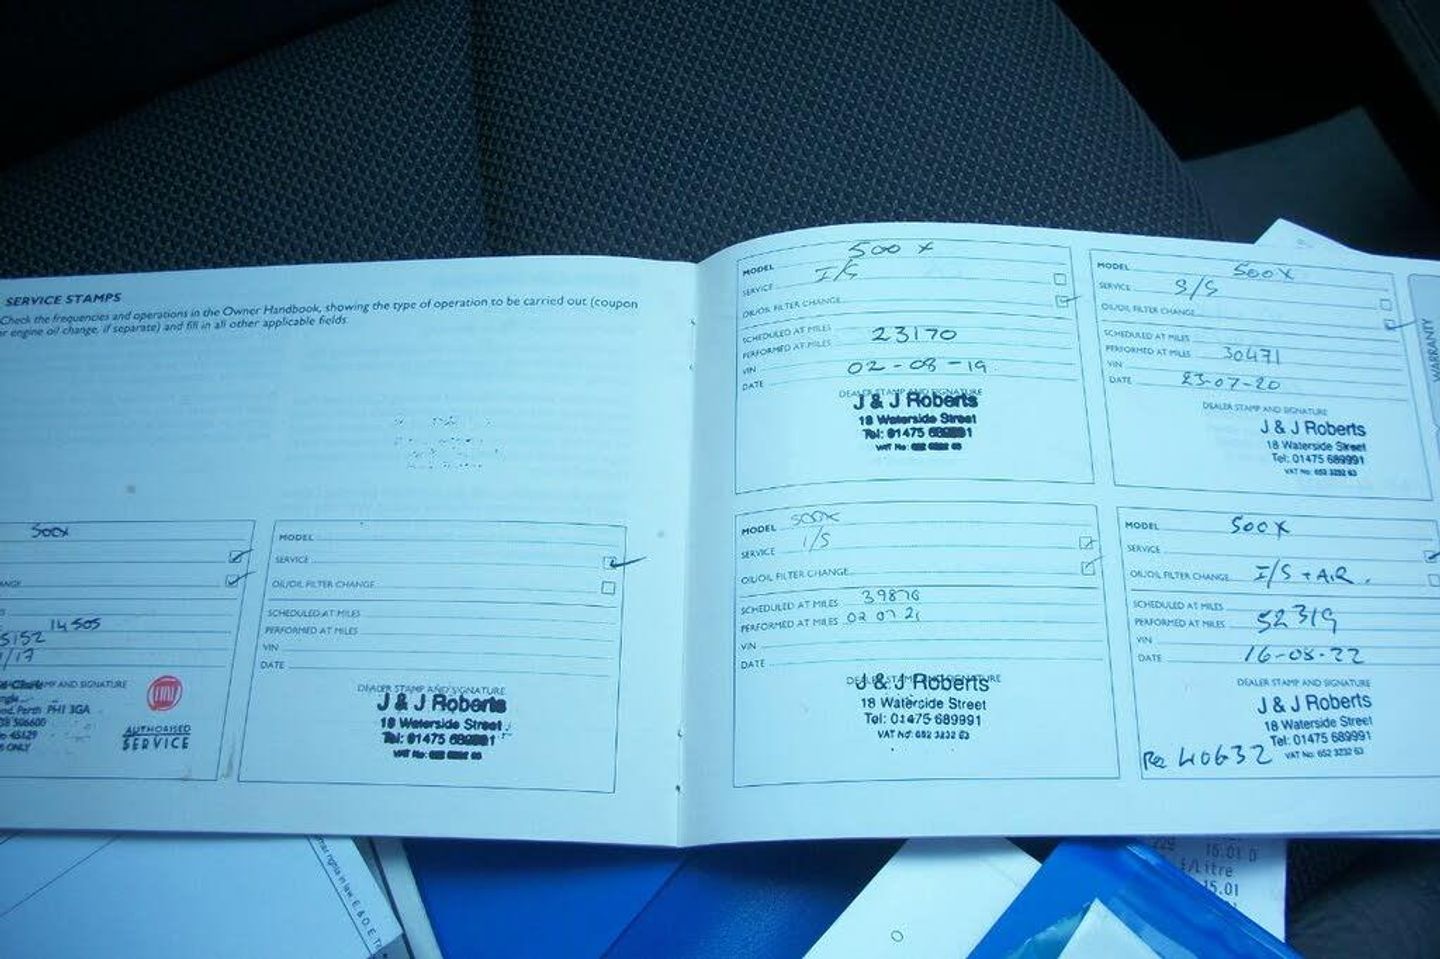 SERVICE STAMPS
Check the frequencies and operations in the Owner Handbook, showing the type of operation to be carried out (coupon
engine oil change, if separate) and fill in all other applicable fields.
500X
14505
5152
/17
STAMP AND SIGNATURE
Perth PH1 3GA
ONLY
FIAT
AUTHORISED
SERVICE
MODEL
SERVICE
OIL/OIL FILTER CHANGE
SCHEDULED AT MILES
PERFORMED AT MILES
VIN
DATE
DEALER STAMP AND SIGNATURE
J & J Roberts
18 Waterside Street
Tel: 01475 689991
VAT No: 652 3232 63
MODEL 500X
SERVICE I/S
OIL/OIL FILTER CHANGE
SCHEDULED AT MILES
PERFORMED AT MILES 23170
VIN
DATE 02-08-19
DEALER STAMP AND SIGNATURE
J & J Roberts
18 Waterside Street
Tel: 01475 689991
VAT No: 652 3232 63
MODEL 500X
SERVICE S/S
OIL/OIL FILTER CHANGE
SCHEDULED AT MILES
PERFORMED AT MILES 30471
VIN
DATE 23-07-20
DEALER STAMP AND SIGNATURE
J & J Roberts
18 Waterside Street
Tel: 01475 689991
VAT No: 652 3232 63
WARRANTY
MODEL 500X
SERVICE I/S
OIL/OIL FILTER CHANGE
SCHEDULED AT MILES 39876
PERFORMED AT MILES 02 07 21
VIN
DATE
DEALER STAMP AND SIGNATURE
J & J Roberts
18 Waterside Street
Tel: 01475 689991
VAT No: 652 3232 63
MODEL 500X
SERVICE
OIL/OIL FILTER CHANGE I/S + AIR.
SCHEDULED AT MILES
PERFORMED AT MILES 52319
VIN
DATE 16-08-22
DEALER STAMP AND SIGNATURE
J & J Roberts
18 Waterside Street
Tel: 01475 689991
VAT No: 652 3232 63
Rez 40632
rights in law. E. & O. E.
15.01
£/Litre
15.01